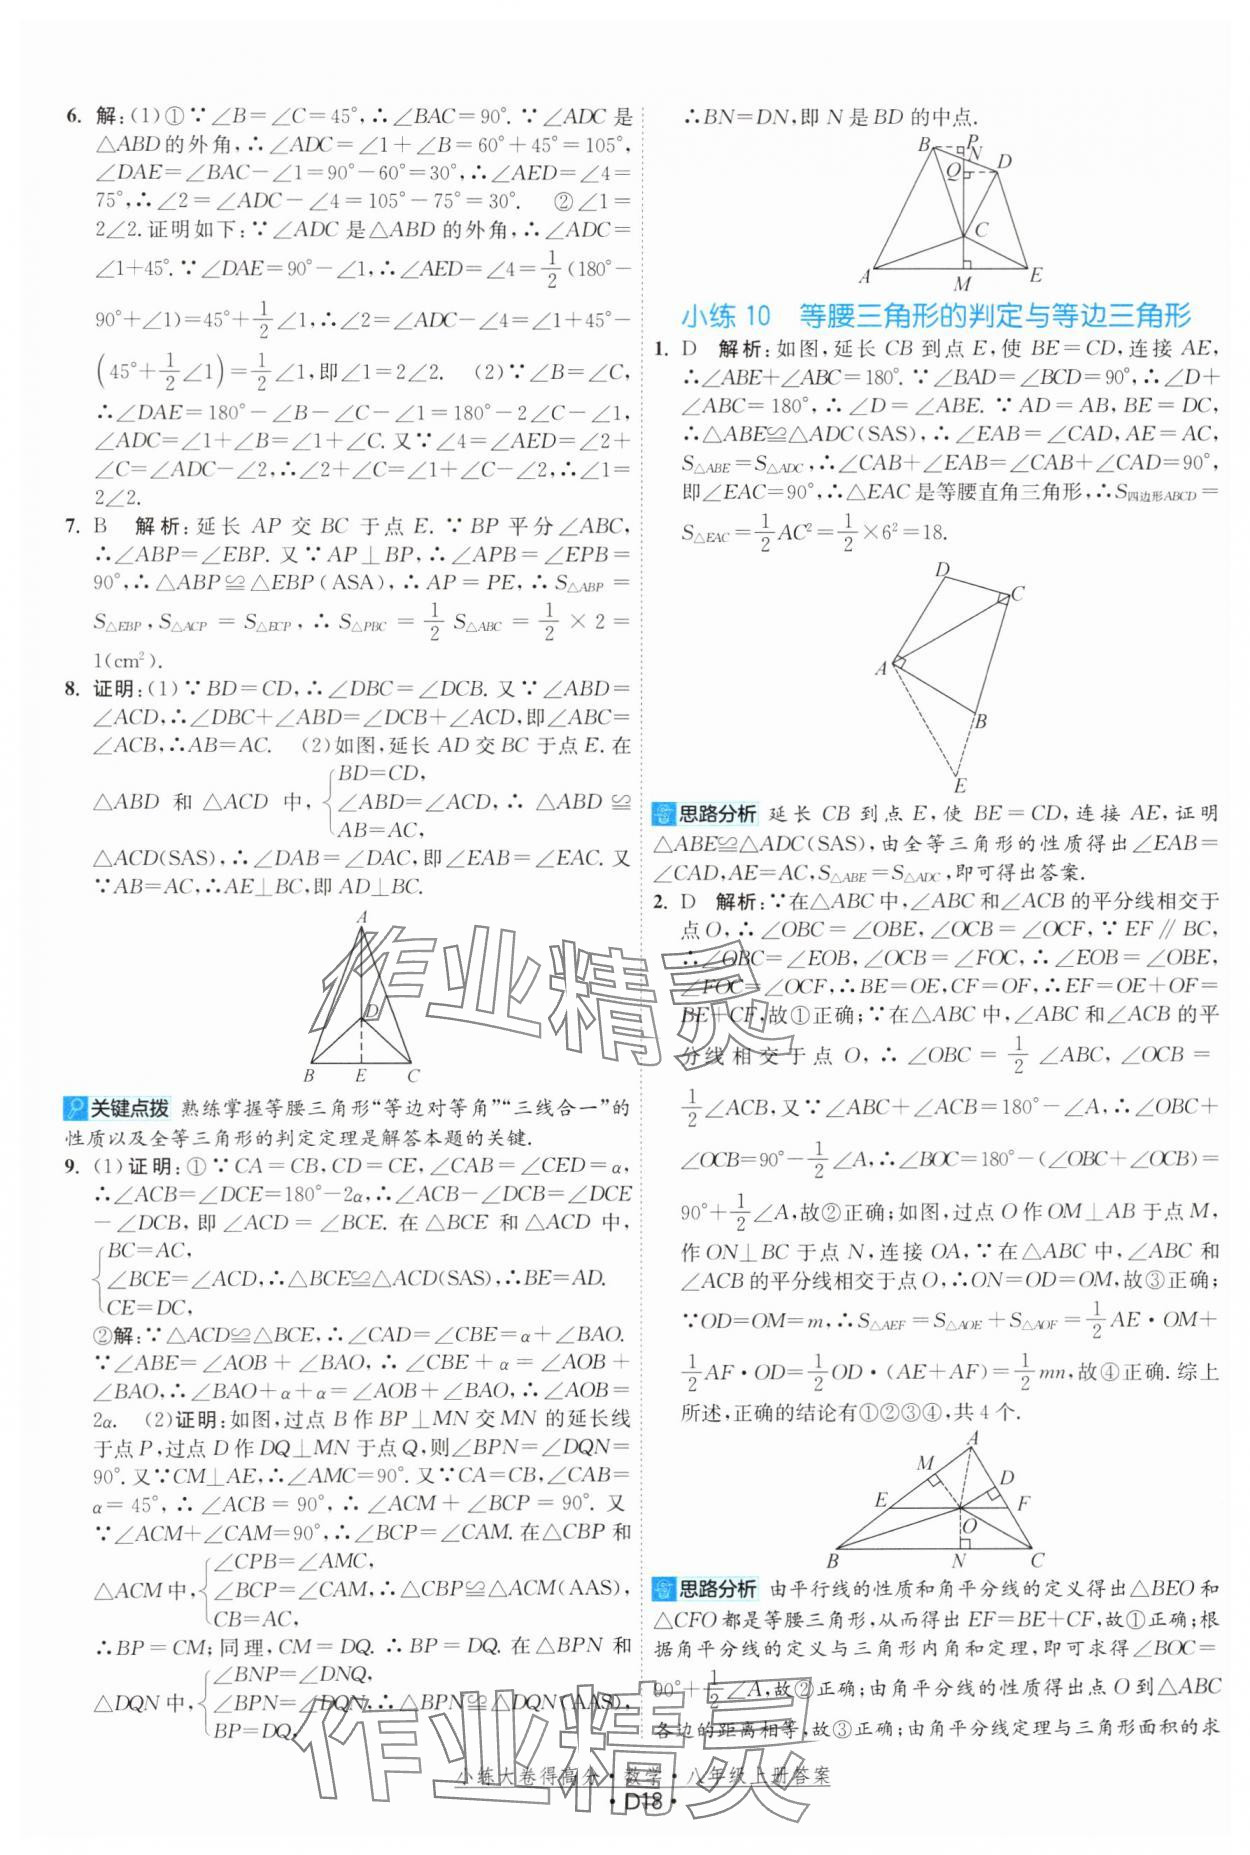 6. 解:(1)①∵∠B=∠C=45°,∴∠BAC=90°.∵∠ADC是
△ABD的外角,∴∠ADC=∠1+∠B=60°+45°=105°,
∠DAE=∠BAC-∠1=90°-60°=30°,∴∠AED=∠4=
75°,∴∠2=∠ADC-∠4=105°-75°=30°. ②∠1=
2∠2.证明如下:∵∠ADC是△ABD的外角,∴∠ADC=
∠1+45°.∵∠DAE=90°-∠1,∴∠AED=∠4=1/2(180°-
90°+∠1)=45°+1/2∠1,∴∠2=∠ADC-∠4=∠1+45°-
(45°+1/2∠1)=1/2∠1,即∠1=2∠2. (2)∵∠B=∠C,
∴∠DAE=180°-∠B-∠C-∠1=180°-2∠C-∠1,
∠ADC=∠1+∠B=∠1+∠C.又∵∠4=∠AED=∠2+
∠C=∠ADC-∠2,∴∠2+∠C=∠1+∠C-∠2,∴∠1=
2∠2.
7. B 解析:延长 AP 交 BC 于点 E.∵BP 平分∠ABC,
∴∠ABP=∠EBP.又∵AP⊥BP,∴∠APB=∠EPB=
90°,∴△ABP≌△EBP(ASA),∴AP=PE,∴S△ABP=
S△EBP,S△ACP=S△ECP,∴S△PBC=1/2 S△ABC=1/2×2=
1(cm²).
8. 证明:(1)∵BD=CD,∴∠DBC=∠DCB.又∵∠ABD=
∠ACD,∴∠DBC+∠ABD=∠DCB+∠ACD,即∠ABC=
∠ACB,∴AB=AC. (2)如图,延长 AD 交 BC 于点 E.在
△ABD 和 △ACD 中,{BD=CD,
∠ABD=∠ACD,∴△ABD≌
AB=AC,
△ACD(SAS),∴∠DAB=∠DAC,即∠EAB=∠EAC.又
∵AB=AC,∴AE⊥BC,即AD⊥BC.
A
D
B E C
关键点拨 熟练掌握等腰三角形“等边对等角”“三线合一”的
性质以及全等三角形的判定定理是解答本题的关键.
9. (1)证明:①∵CA=CB,CD=CE,∠CAB=∠CED=α,
∴∠ACB=∠DCE=180°-2α,∴∠ACB-∠DCB=∠DCE
-∠DCB,即∠ACD=∠BCE.在△BCE 和△ACD 中,
{BC=AC,
∠BCE=∠ACD,∴△BCE≌△ACD(SAS),∴BE=AD.
CE=DC,
②解:∵△ACD≌△BCE,∴∠CAD=∠CBE=α+∠BAO.
∵∠ABE=∠AOB+∠BAO,∴∠CBE+α=∠AOB+
∠BAO,∴∠BAO+α+α=∠AOB+∠BAO,∴∠AOB=
2α. (2)证明:如图,过点 B 作 BP⊥MN 交 MN 的延长线
于点 P,过点 D 作 DQ⊥MN 于点 Q,则∠BPN=∠DQN=
90°.又∵CM⊥AE,∴∠AMC=90°.又∵CA=CB,∠CAB=
α=45°,∴∠ACB=90°,∴∠ACM+∠BCP=90°.又
∵∠ACM+∠CAM=90°,∴∠BCP=∠CAM.在△CBP 和
△ACM 中,{∠CPB=∠AMC,
∠BCP=∠CAM,∴△CBP≌△ACM(AAS),
CB=AC,
∴BP=CM;同理,CM=DQ.∴BP=DQ.在△BPN 和
△DQN 中,{∠BNP=∠DNQ,
∠BPN=∠DQN,∴△BPN≌△DQN(AAS),
BP=DQ,
∴BN=DN,即 N 是 BD 的中点.
B P N D
Q
C
A M E
小练 10 等腰三角形的判定与等边三角形
1. D 解析:如图,延长 CB 到点 E,使 BE=CD,连接 AE,
∴∠ABE+∠ABC=180°.∵∠BAD=∠BCD=90°,∴∠D+
∠ABC=180°,∴∠D=∠ABE.∵AD=AB,BE=DC,
∴△ABE≌△ADC(SAS),∴∠EAB=∠CAD,AE=AC,
S△ABE=S△ADC,∴∠CAB+∠EAB=∠CAB+∠CAD=90°,
即∠EAC=90°,∴△EAC是等腰直角三角形,∴S四边形ABCD=
S△EAC=1/2AC²=1/2×6²=18.
D
C
A
B
E
思路分析 延长 CB 到点 E,使 BE=CD,连接 AE,证明
△ABE≌△ADC(SAS),由全等三角形的性质得出∠EAB=
∠CAD,AE=AC,S△ABE=S△ADC,即可得出答案.
2. D 解析:∵在△ABC中,∠ABC和∠ACB的平分线相交于
点O,∴∠OBC=∠OBE,∠OCB=∠OCF,∵EF∥BC,
∴∠OBC=∠EOB,∠OCB=∠FOC,∴∠EOB=∠OBE,
∠FOC=∠OCF,∴BE=OE,CF=OF,∴EF=OE+OF=
BE+CF,故①正确;∵在△ABC中,∠ABC和∠ACB的平
分线相交于点 O,∴∠OBC=1/2∠ABC,∠OCB=
1/2∠ACB,又∵∠ABC+∠ACB=180°-∠A,∴∠OBC+
∠OCB=90°-1/2∠A,∴∠BOC=180°-(∠OBC+∠OCB)=
90°+1/2∠A,故②正确;如图,过点O作OM⊥AB于点M,
作ON⊥BC于点 N,连接 OA,∵在△ABC 中,∠ABC 和
∠ACB的平分线相交于点O,∴ON=OD=OM,故③正确;
∵OD=OM=m,∴S△AEF=S△AOE+S△AOF=1/2AE·OM+
1/2AF·OD=1/2OD·(AE+AF)=1/2mn,故④正确.综上
所述,正确的结论有①②③④,共 4 个.
A
M D
E F
O
B N C
思路分析 由平行线的性质和角平分线的定义得出△BEO和
△CFO都是等腰三角形,从而得出 EF=BE+CF,故①正确;根
据角平分线的定义与三角形内角和定理,即可求得∠BOC=
90°+1/2∠A,故②正确;由角平分线的性质得出点 O 到△ABC
各边的距离相等,故③正确;由角平分线定理与三角形面积的求
小练大卷得高分·数学·八年级上册答案
·D18·
作业精灵
作业精灵